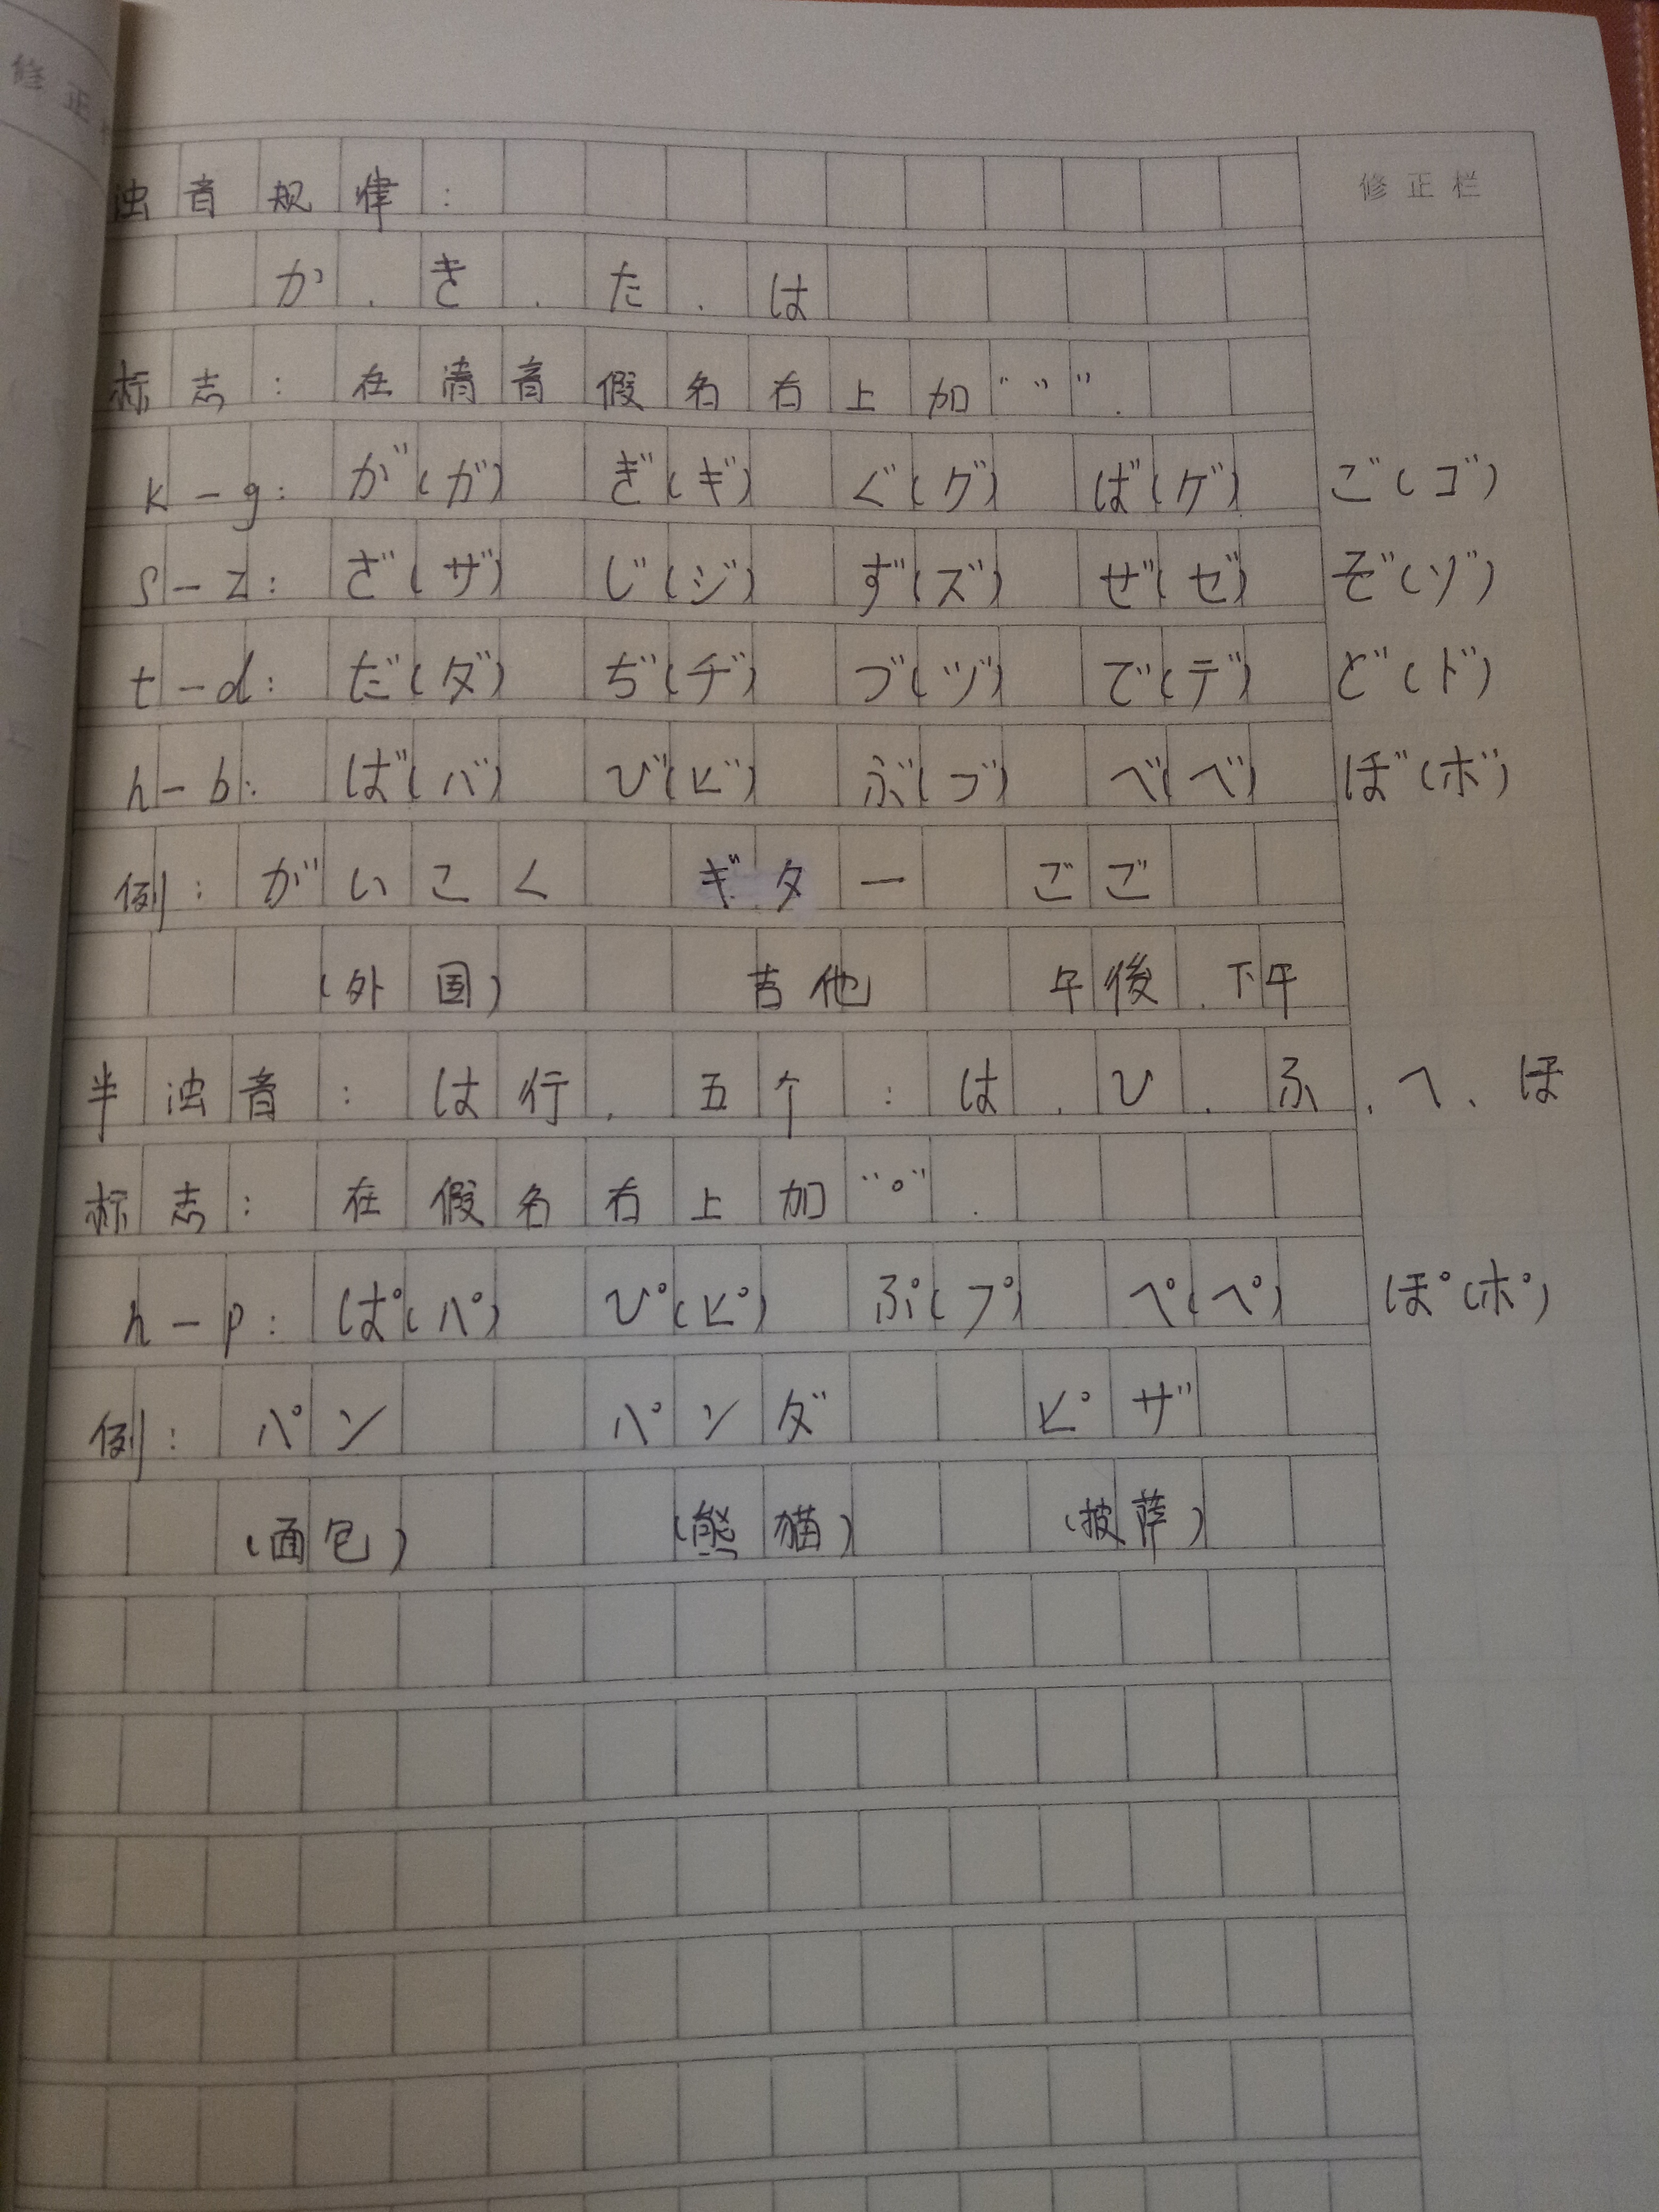 修正
修正栏
浊音规律：
か．き．た．は
标志：在清音假名右上加“゛”．
k－g：が（ガ） ぎ（ギ） ぐ（グ） ば（ゲ） ご（ゴ）
s－z：ざ（ザ） じ（ジ） ず（ズ） ぜ（ゼ） ぞ（ゾ）
t－d：だ（ダ） ぢ（ヂ） づ（ヅ） で（デ） ど（ド）
h－b：ば（バ） び（ビ） ぶ（ブ） べ（ベ） ぼ（ボ）
例：がいこく ギター ごご
（外国） 吉他 午後．下午
半浊音：は行．五个：は．ひ．ふ．へ、ほ
标志：在假名右上加“°”．
h－p：ぱ（パ） ぴ（ピ） ぷ（プ） ぺ（ペ） ぽ（ポ）
例：パン パンダ ピザ
（面包） （熊猫） （披萨）